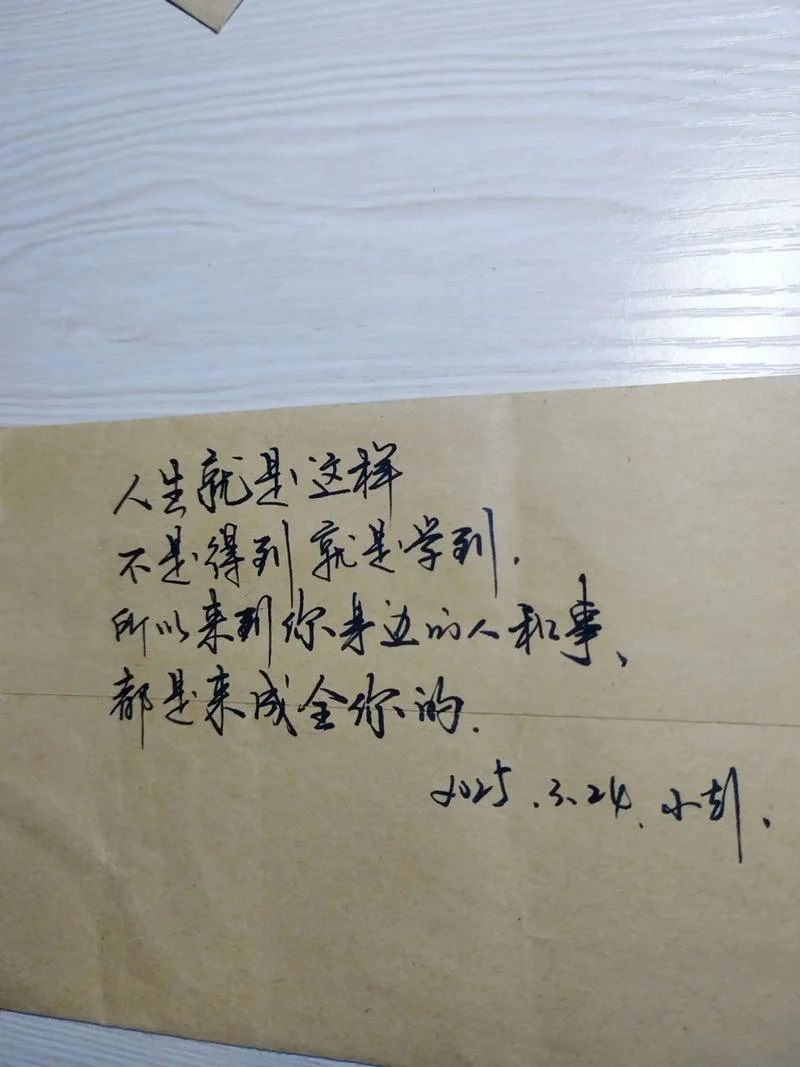 人生就是这样
不是得到就是学到.
所以来到你身边的人和事、
都是来成全你的.
2025.3.24.小彭.